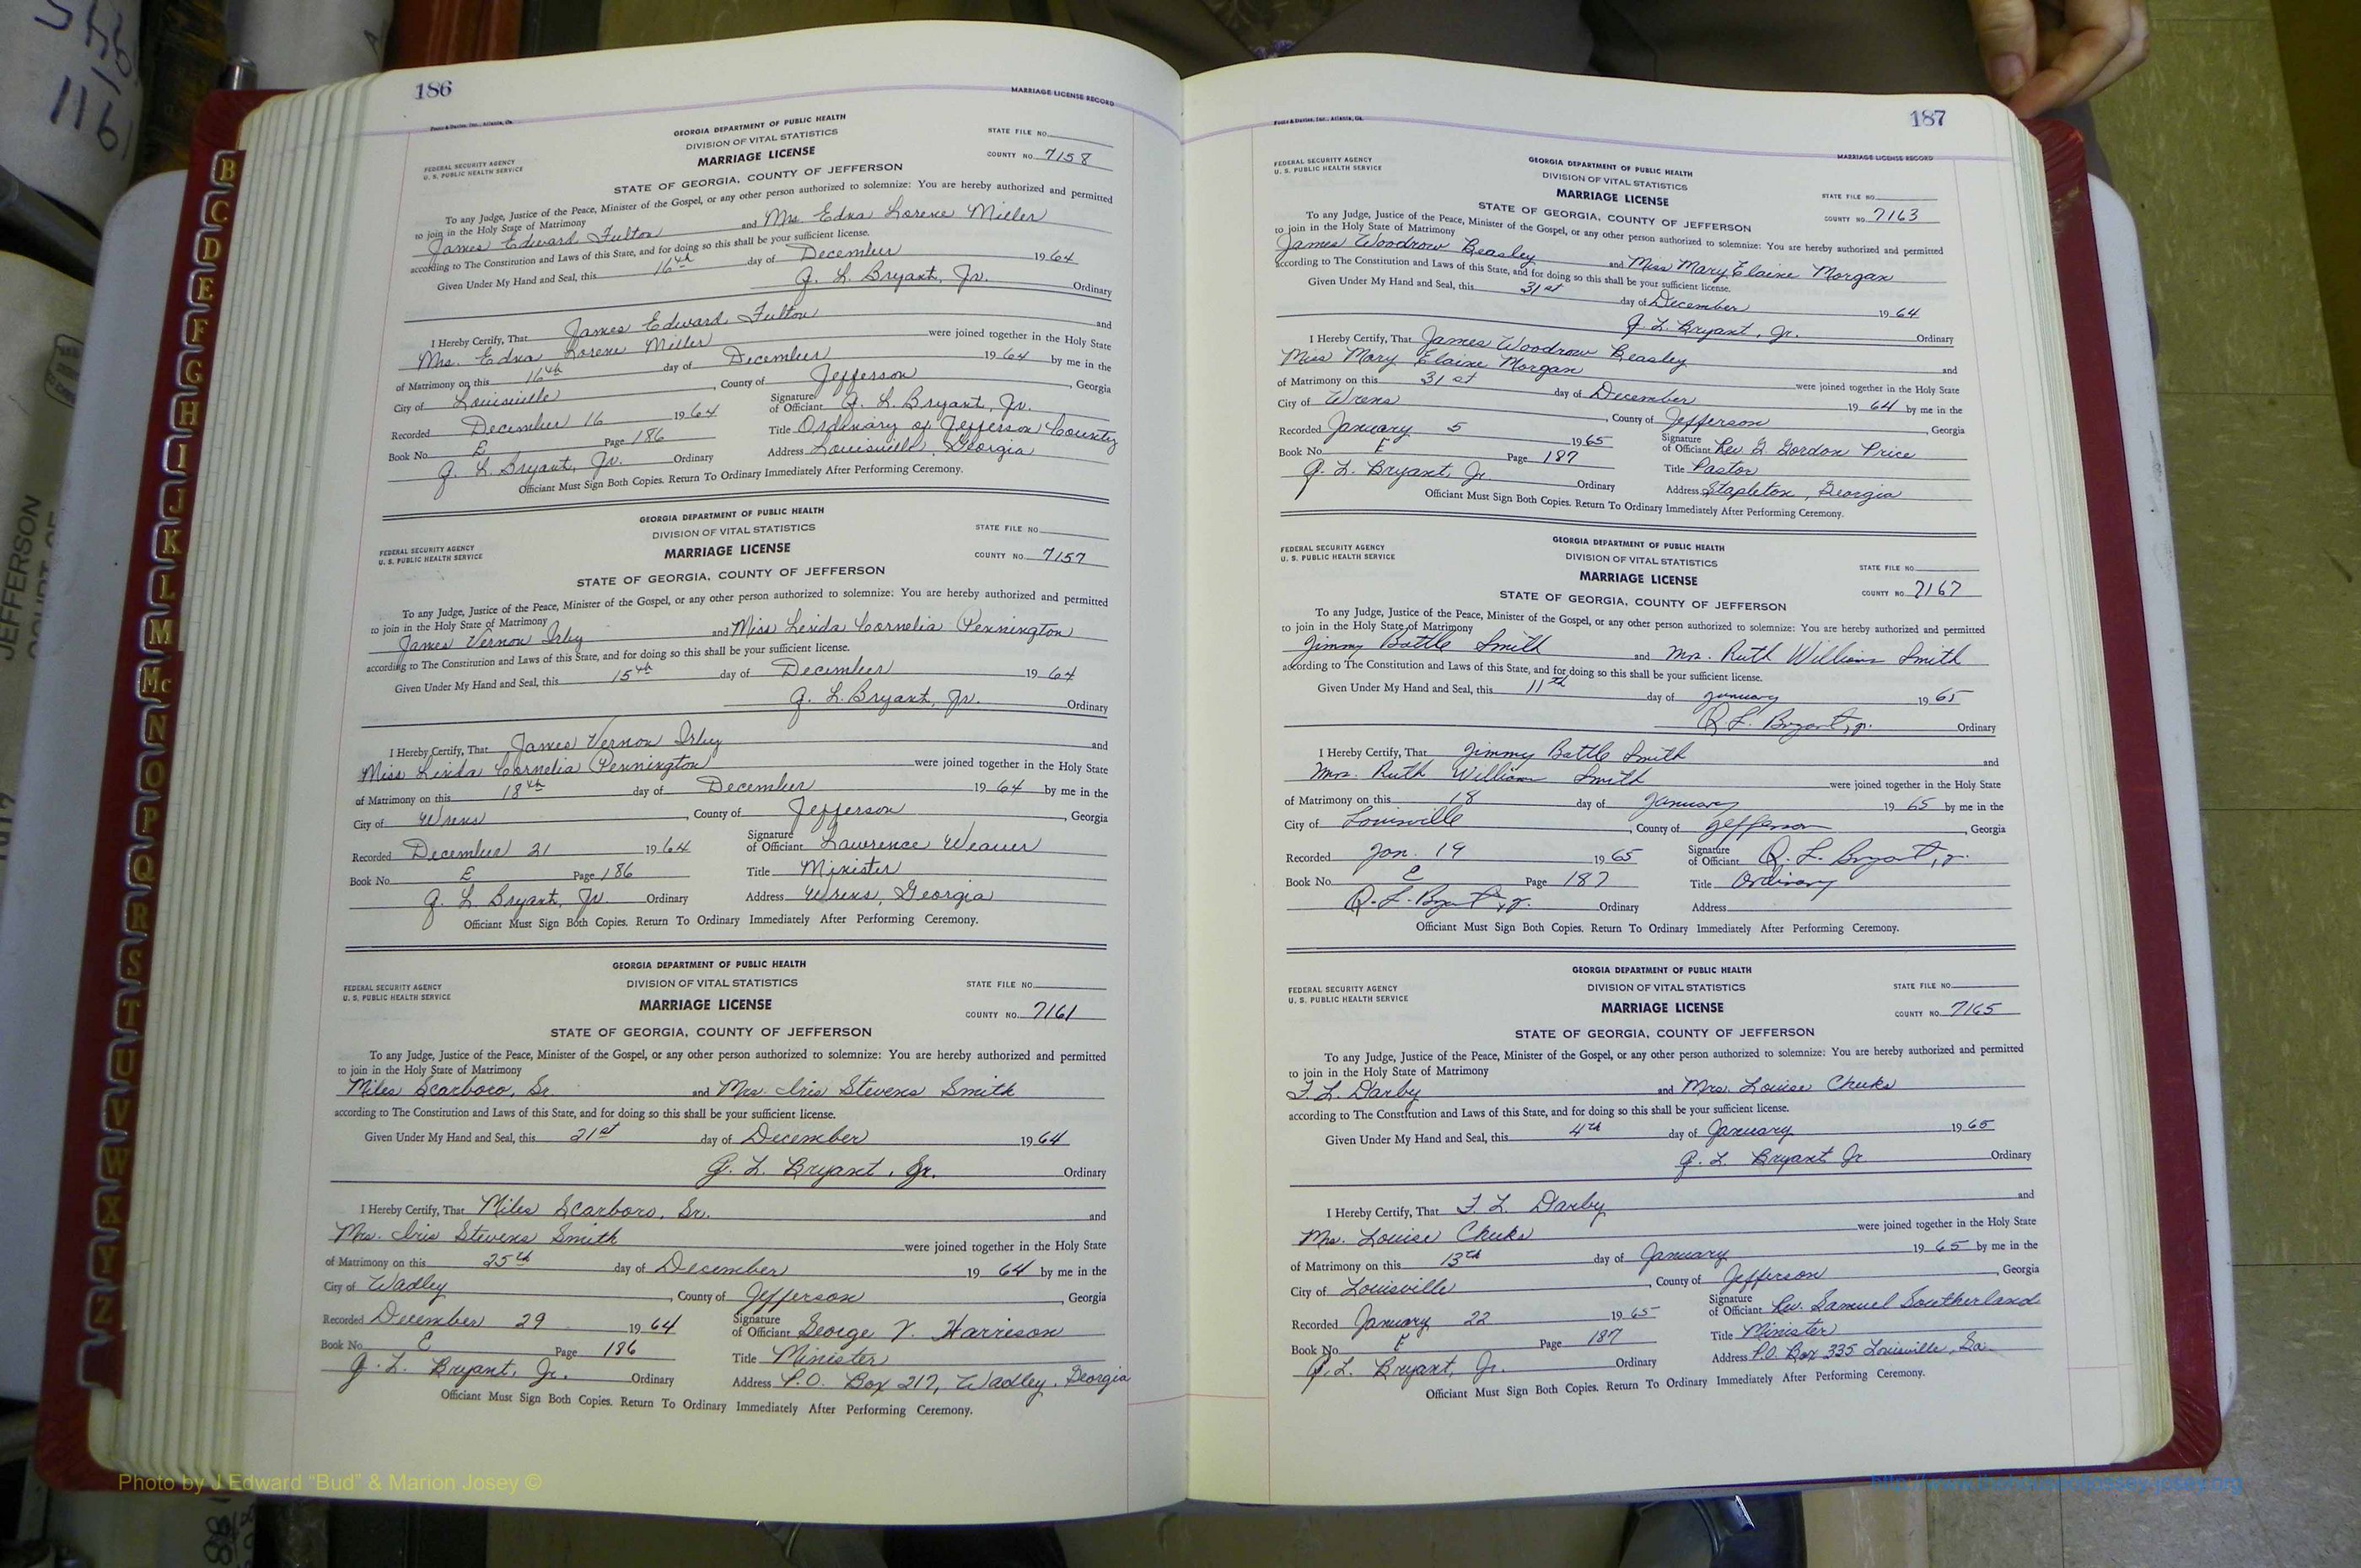 186
MARRIAGE LICENSE RECORD
Foote & Davies, Inc., Atlanta, Ga.
GEORGIA DEPARTMENT OF PUBLIC HEALTH
DIVISION OF VITAL STATISTICS
MARRIAGE LICENSE
STATE OF GEORGIA, COUNTY OF JEFFERSON
FEDERAL SECURITY AGENCY
U. S. PUBLIC HEALTH SERVICE
STATE FILE NO.
COUNTY NO. 7158
To any Judge, Justice of the Peace, Minister of the Gospel, or any other person authorized to solemnize: You are hereby authorized and permitted
to join in the Holy State of Matrimony
James Edward Fulton and Mrs. Edna Lorene Miller
according to The Constitution and Laws of this State, and for doing so this shall be your sufficient license.
Given Under My Hand and Seal, this 16th day of December 1964
Q. L. Bryant, Jr. Ordinary
I Hereby Certify, That James Edward Fulton and
Mrs. Edna Lorene Miller were joined together in the Holy State
of Matrimony on this 16th day of December 1964 by me in the
City of Louisville, County of Jefferson, Georgia
Recorded December 16 1964 Signature of Officiant Q. L. Bryant, Jr.
Book No. E Page 186 Title Ordinary of Jefferson County
Q. L. Bryant, Jr. Ordinary Address Louisville, Georgia
Officiant Must Sign Both Copies. Return To Ordinary Immediately After Performing Ceremony.
GEORGIA DEPARTMENT OF PUBLIC HEALTH
DIVISION OF VITAL STATISTICS
MARRIAGE LICENSE
STATE OF GEORGIA, COUNTY OF JEFFERSON
FEDERAL SECURITY AGENCY
U. S. PUBLIC HEALTH SERVICE
STATE FILE NO.
COUNTY NO. 7157
To any Judge, Justice of the Peace, Minister of the Gospel, or any other person authorized to solemnize: You are hereby authorized and permitted
to join in the Holy State of Matrimony
James Vernon Irby and Miss Linda Cornelia Pennington
according to The Constitution and Laws of this State, and for doing so this shall be your sufficient license.
Given Under My Hand and Seal, this 15th day of December 1964
Q. L. Bryant, Jr. Ordinary
I Hereby Certify, That James Vernon Irby and
Miss Linda Cornelia Pennington were joined together in the Holy State
of Matrimony on this 18th day of December 1964 by me in the
City of Wrens, County of Jefferson, Georgia
Recorded December 21 1964 Signature of Officiant Lawrence Weaver
Book No. E Page 186 Title Minister
Q. L. Bryant, Jr. Ordinary Address Wrens, Georgia
Officiant Must Sign Both Copies. Return To Ordinary Immediately After Performing Ceremony.
GEORGIA DEPARTMENT OF PUBLIC HEALTH
DIVISION OF VITAL STATISTICS
MARRIAGE LICENSE
STATE OF GEORGIA, COUNTY OF JEFFERSON
FEDERAL SECURITY AGENCY
U. S. PUBLIC HEALTH SERVICE
STATE FILE NO.
COUNTY NO. 7161
To any Judge, Justice of the Peace, Minister of the Gospel, or any other person authorized to solemnize: You are hereby authorized and permitted
to join in the Holy State of Matrimony
Miles Scarboro, Sr. and Mrs. Iris Stevens Smith
according to The Constitution and Laws of this State, and for doing so this shall be your sufficient license.
Given Under My Hand and Seal, this 21st day of December 1964
Q. L. Bryant, Jr. Ordinary
I Hereby Certify, That Miles Scarboro, Sr. and
Mrs. Iris Stevens Smith were joined together in the Holy State
of Matrimony on this 25th day of December 1964 by me in the
City of Wadley, County of Jefferson, Georgia
Recorded December 29 1964 Signature of Officiant George V. Harrison
Book No. E Page 186 Title Minister
Q. L. Bryant, Jr. Ordinary Address P.O. Box 217, Wadley, Georgia
Officiant Must Sign Both Copies. Return To Ordinary Immediately After Performing Ceremony.
187
MARRIAGE LICENSE RECORD
Foote & Davies, Inc., Atlanta, Ga.
GEORGIA DEPARTMENT OF PUBLIC HEALTH
DIVISION OF VITAL STATISTICS
MARRIAGE LICENSE
STATE OF GEORGIA, COUNTY OF JEFFERSON
FEDERAL SECURITY AGENCY
U. S. PUBLIC HEALTH SERVICE
STATE FILE NO.
COUNTY NO. 7163
To any Judge, Justice of the Peace, Minister of the Gospel, or any other person authorized to solemnize: You are hereby authorized and permitted
to join in the Holy State of Matrimony
James Woodrow Beasley and Miss Mary Elaine Morgan
according to The Constitution and Laws of this State, and for doing so this shall be your sufficient license.
Given Under My Hand and Seal, this 31st day of December 1964
Q. L. Bryant, Jr. Ordinary
I Hereby Certify, That James Woodrow Beasley and
Miss Mary Elaine Morgan were joined together in the Holy State
of Matrimony on this 31st day of December 1964 by me in the
City of Wrens, County of Jefferson, Georgia
Recorded January 5 1965 Signature of Officiant Rev. G. Gordon Price
Book No. E Page 187 Title Pastor
Q. L. Bryant, Jr. Ordinary Address Stapleton, Georgia
Officiant Must Sign Both Copies. Return To Ordinary Immediately After Performing Ceremony.
GEORGIA DEPARTMENT OF PUBLIC HEALTH
DIVISION OF VITAL STATISTICS
MARRIAGE LICENSE
STATE OF GEORGIA, COUNTY OF JEFFERSON
FEDERAL SECURITY AGENCY
U. S. PUBLIC HEALTH SERVICE
STATE FILE NO.
COUNTY NO. 7167
To any Judge, Justice of the Peace, Minister of the Gospel, or any other person authorized to solemnize: You are hereby authorized and permitted
to join in the Holy State of Matrimony
Jimmy Battle Smith and Mrs. Ruth William Smith
according to The Constitution and Laws of this State, and for doing so this shall be your sufficient license.
Given Under My Hand and Seal, this 11th day of January 1965
Q. L. Bryant, Jr. Ordinary
I Hereby Certify, That Jimmy Battle Smith and
Mrs. Ruth William Smith were joined together in the Holy State
of Matrimony on this 18 day of January 1965 by me in the
City of Louisville, County of Jefferson, Georgia
Recorded Jan. 19 1965 Signature of Officiant Q. L. Bryant, Jr.
Book No. E Page 187 Title Ordinary
Q. L. Bryant, Jr. Ordinary Address
Officiant Must Sign Both Copies. Return To Ordinary Immediately After Performing Ceremony.
GEORGIA DEPARTMENT OF PUBLIC HEALTH
DIVISION OF VITAL STATISTICS
MARRIAGE LICENSE
STATE OF GEORGIA, COUNTY OF JEFFERSON
FEDERAL SECURITY AGENCY
U. S. PUBLIC HEALTH SERVICE
STATE FILE NO.
COUNTY NO. 7165
To any Judge, Justice of the Peace, Minister of the Gospel, or any other person authorized to solemnize: You are hereby authorized and permitted
to join in the Holy State of Matrimony
F. L. Darby and Mrs. Louise Cheeks
according to The Constitution and Laws of this State, and for doing so this shall be your sufficient license.
Given Under My Hand and Seal, this 4th day of January 1965
Q. L. Bryant Jr. Ordinary
I Hereby Certify, That F. L. Darby and
Mrs. Louise Cheeks were joined together in the Holy State
of Matrimony on this 13th day of January 1965 by me in the
City of Louisville, County of Jefferson, Georgia
Recorded January 22 1965 Signature of Officiant Rev. Samuel Southerland
Book No. E Page 187 Title Minister
Q. L. Bryant, Jr. Ordinary Address P.O. Box 335 Louisville, Ga.
Officiant Must Sign Both Copies. Return To Ordinary Immediately After Performing Ceremony.
B
C
D
E
F
G
H
I
J
K
L
M
Mc
N
O
P
Q
R
S
T
U
V
W
X
Y
Z
JEFFERSON
Photo by J Edward “Bud” & Marion Josey ©